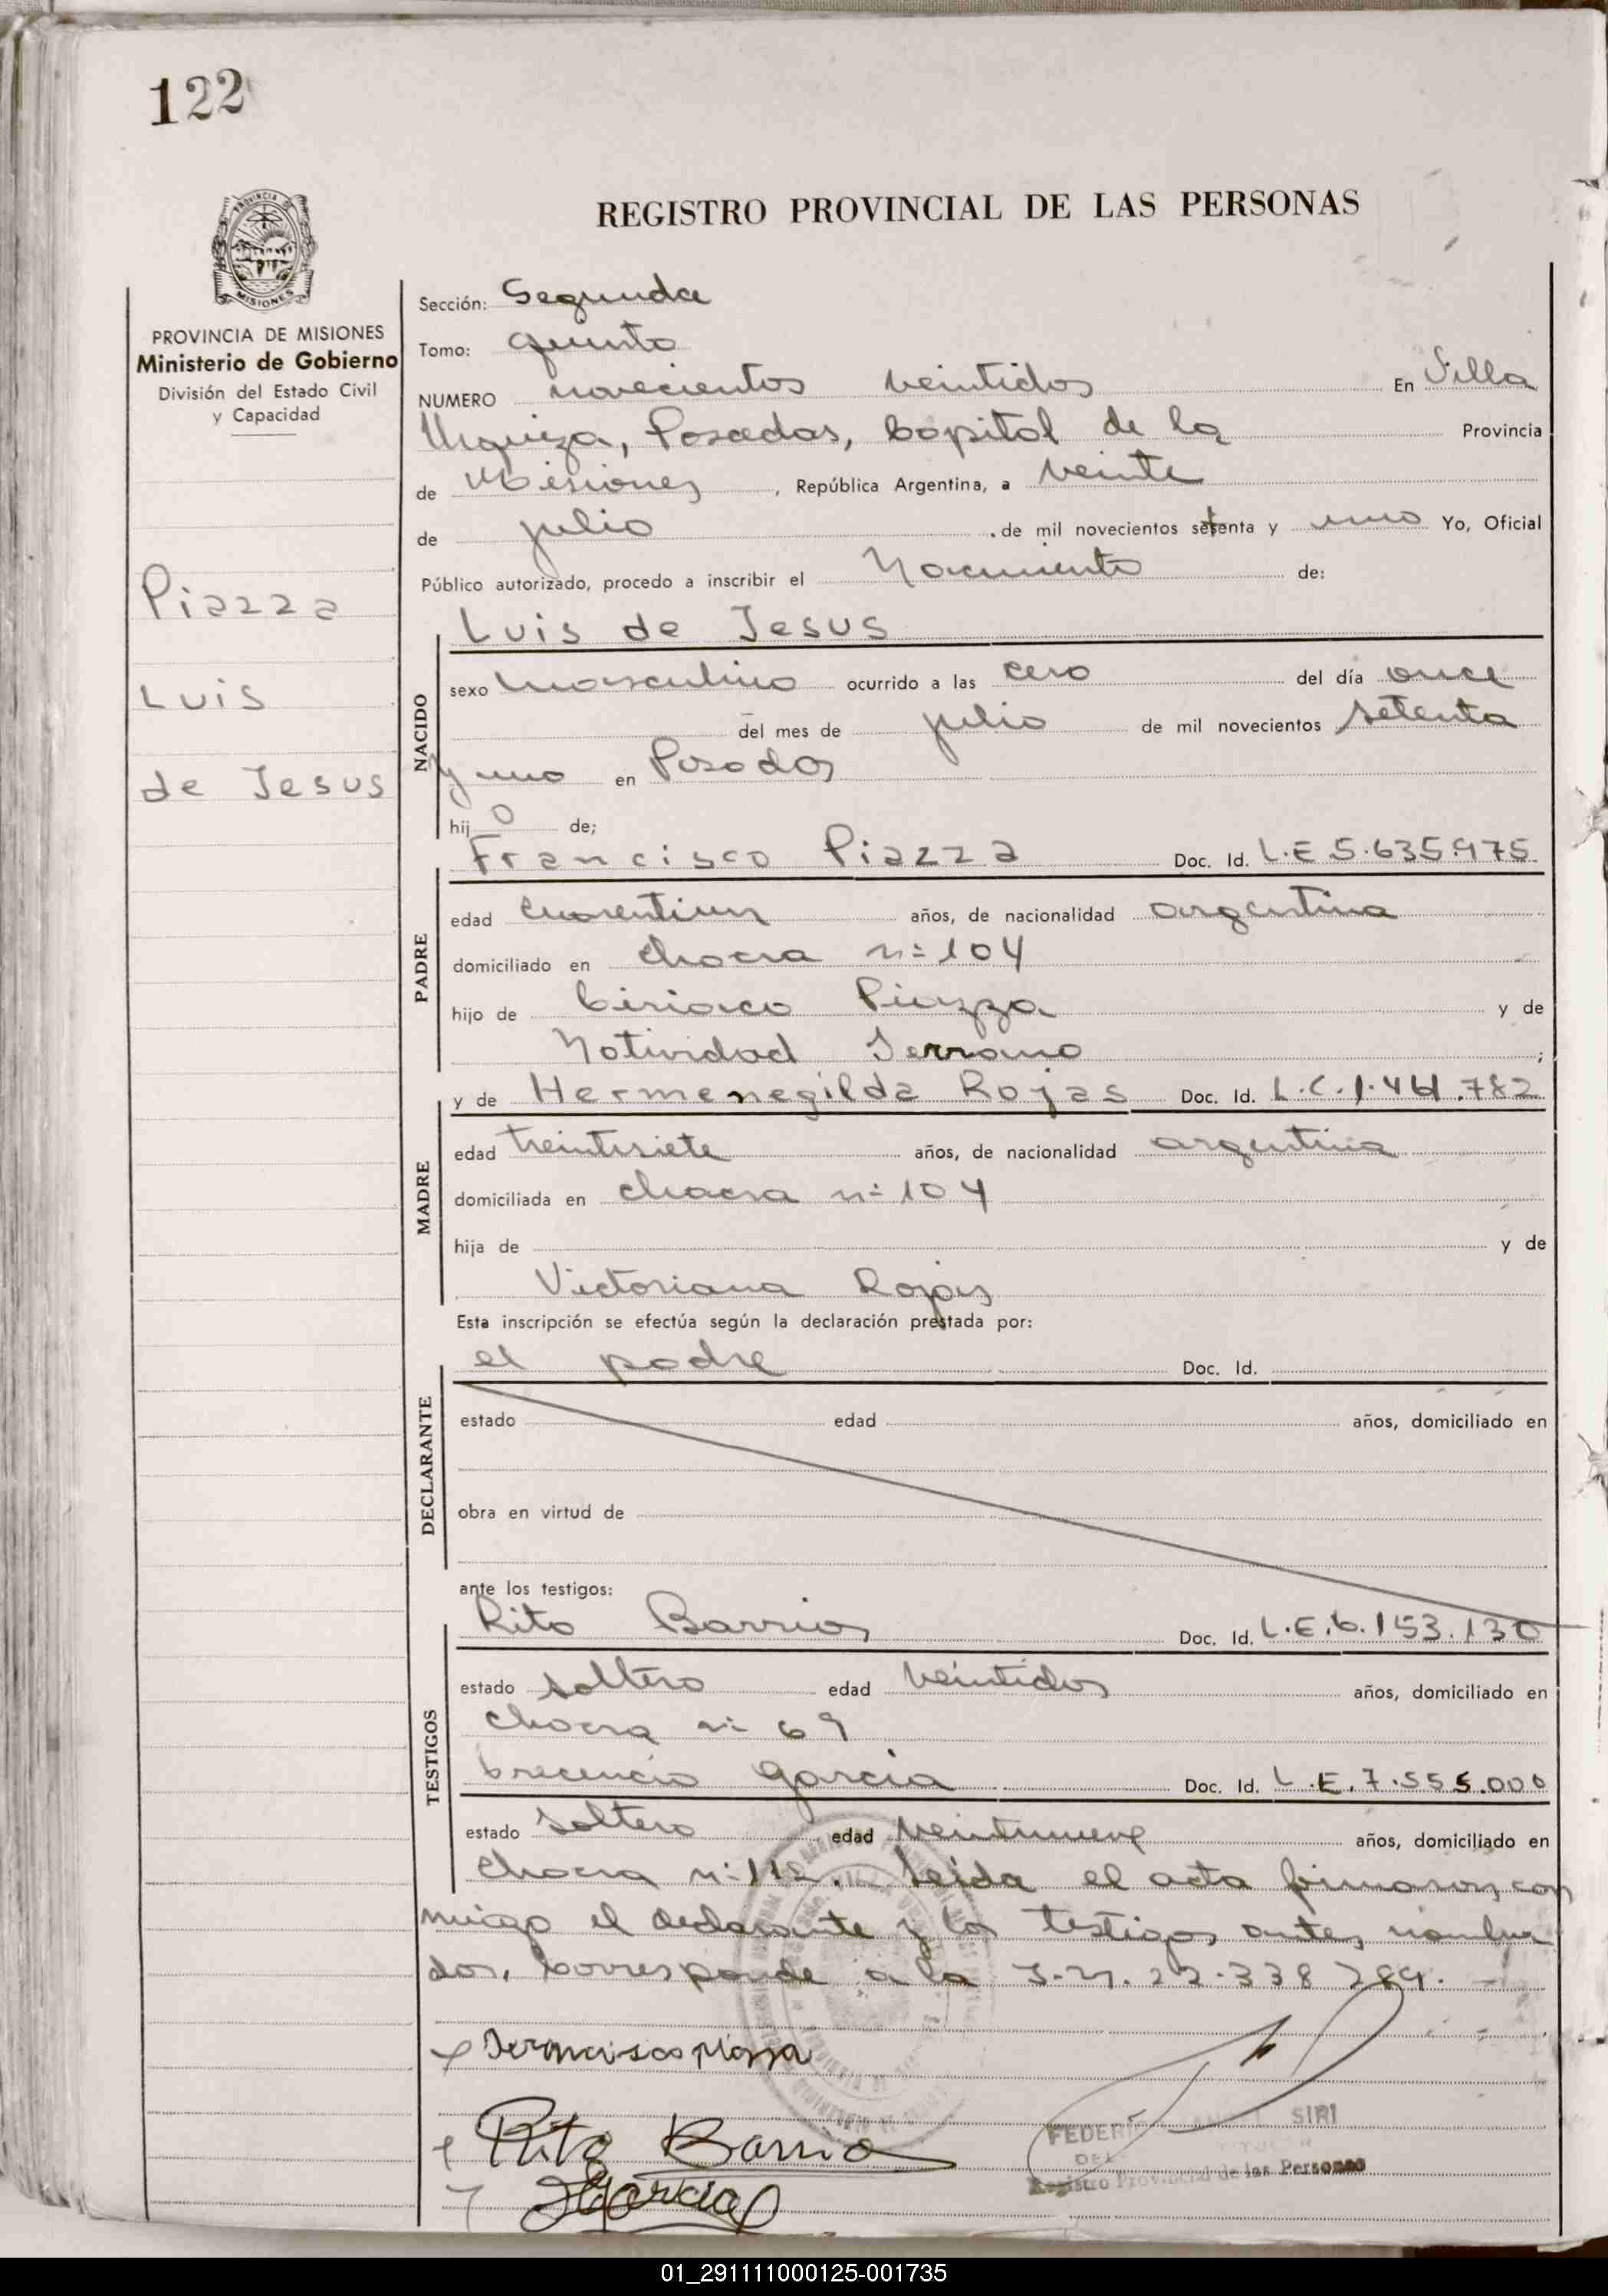 122
REGISTRO PROVINCIAL DE LAS PERSONAS
PROVINCIA DE MISIONES
Ministerio de Gobierno
División del Estado Civil
y Capacidad
Piazza
Luis
de Jesus
Sección: Segunda
Tomo: quinto
NUMERO novecientos veintidos En Villa
Urquiza, Posadas, Capital de la Provincia
de Misiones, República Argentina, a veinte
de julio de mil novecientos setenta y uno Yo, Oficial
Público autorizado, procedo a inscribir el Nacimiento de:
Luis de Jesus
NACIDO
sexo masculino ocurrido a las cero del día once
del mes de julio de mil novecientos setenta
y uno en Posadas
hijo de;
Francisco Piazza Doc. Id. L.E 5.635.975
PADRE
edad cuarentiun años, de nacionalidad argentina
domiciliado en chacra nº 104
hijo de Ciriaco Piazza y de
Natividad Serrano;
y de Hermenegilda Rojas Doc. Id. L.C. .782
MADRE
edad treintisiete años, de nacionalidad argentina
domiciliada en chacra nº 104
hija de y de
Victoriana Rojas
Esta inscripción se efectúa según la declaración prestada por:
el padre Doc. Id.
DECLARANTE
estado edad años, domiciliado en
obra en virtud de
ante los testigos:
Rito Barrios Doc. Id. L.E.6.153.130
TESTIGOS
estado soltero edad veintidos años, domiciliado en
chacra nº 69
Crecencio Garcia Doc. Id. L.E.7.555.000
estado soltero edad veintinueve años, domiciliado en
chacra nº 112. Leida el acta firmaron con
migo el declarante y los testigos antes nombra
dos. Corresponde a la I.N. 22.338 289.
Rito Barrio
Garcia
FEDERI SIRI
DEL
Registro Provincial de las Personas
01_291111000125-001735